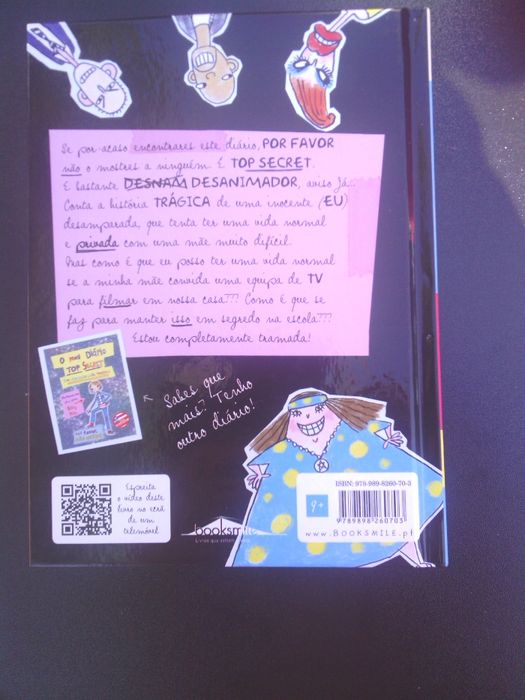 Se por acaso encontrares este diário, POR FAVOR
não o mostres a ninguém. É TOP SECRET.
É bastante DESNAM DESANIMADOR, aviso já...
Conta a história TRÁGICA de uma inocente (EU)
desamparada, que tenta ter uma vida normal
e privada com uma mãe muito difícil.
Mas como é que eu posso ter uma vida normal
se a minha mãe convida uma equipa de TV
para filmar em nossa casa??? Como é que se
faz para manter isso em segredo na escola???
Estou completamente tramada!
O meu Diário
TOP SECRET
Sabes que
mais? Tenho
outro diário!
Espreita
o vídeo deste
livro no ecrã
de um
telemóvel
booksmile
Livros que
9+
ISBN: 978-989-8260-70-3
9789898260703
www.Booksmile.pt